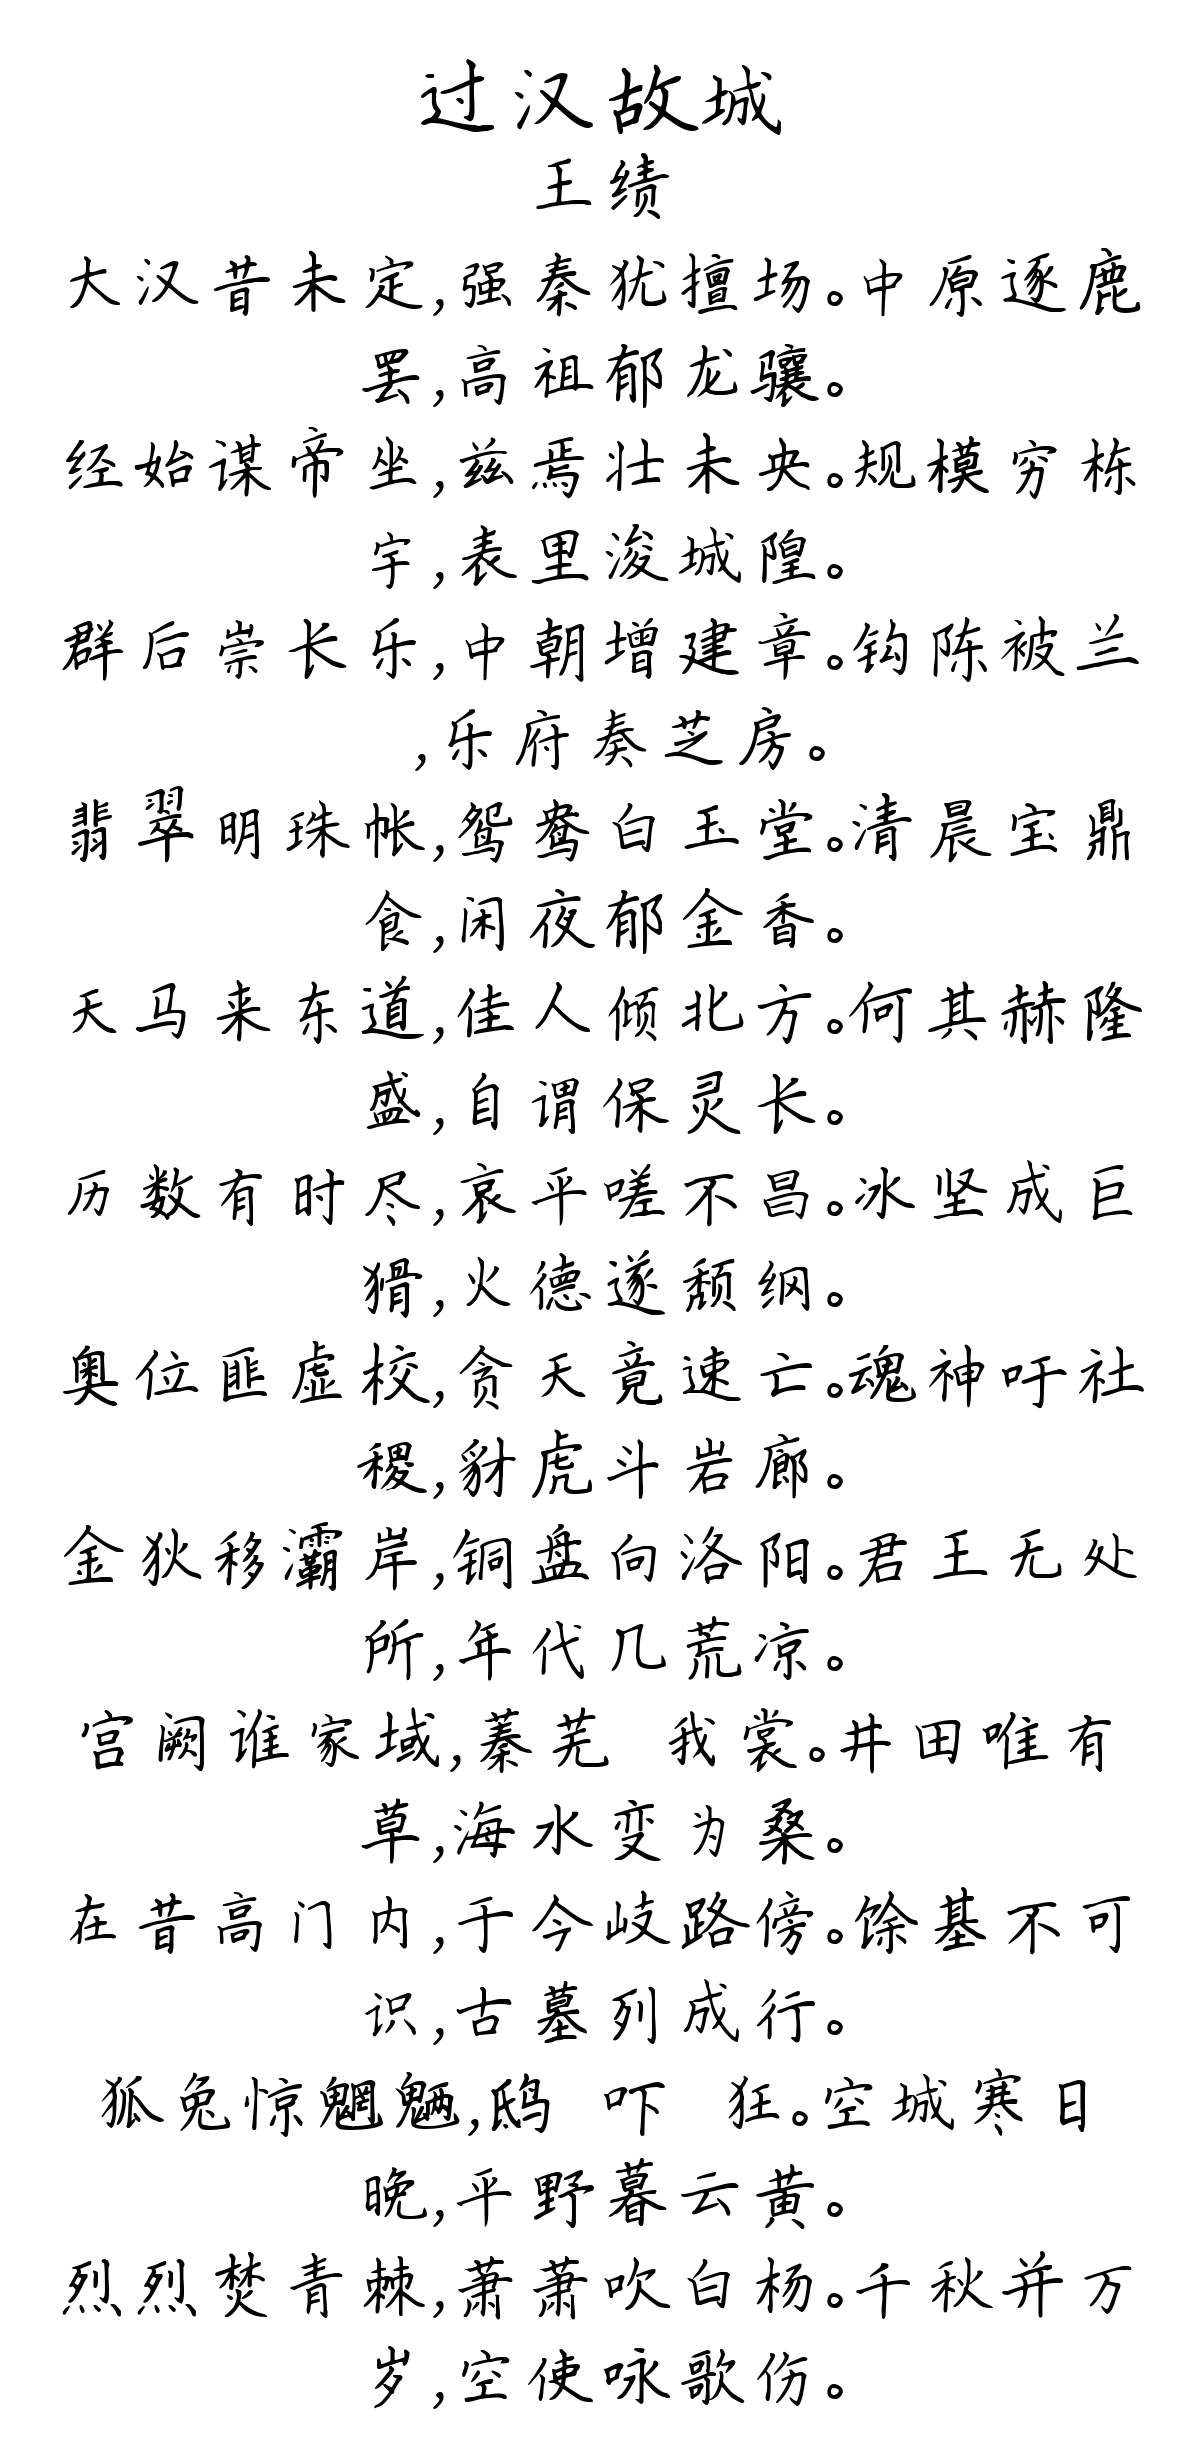 过汉故城
王绩
大汉昔未定,强秦犹擅场。中原逐鹿
罢,高祖郁龙骧。
经始谋帝坐,兹焉壮未央。规模穷栋
宇,表里浚城隍。
群后崇长乐,中朝增建章。钩陈被兰
,乐府奏芝房。
翡翠明珠帐,鸳鸯白玉堂。清晨宝鼎
食,闲夜郁金香。
天马来东道,佳人倾北方。何其赫隆
盛,自谓保灵长。
历数有时尽,哀平嗟不昌。冰坚成巨
猾,火德遂颓纲。
奥位匪虚校,贪天竟速亡。魂神吁社
稷,豺虎斗岩廊。
金狄移灞岸,铜盘向洛阳。君王无处
所,年代几荒凉。
宫阙谁家域,蓁芜 我裳。井田唯有
草,海水变为桑。
在昔高门内,于今岐路傍。馀基不可
识,古墓列成行。
狐兔惊魍魉,鸱 吓 狂。空城寒日
晚,平野暮云黄。
烈烈焚青棘,萧萧吹白杨。千秋并万
岁,空使咏歌伤。